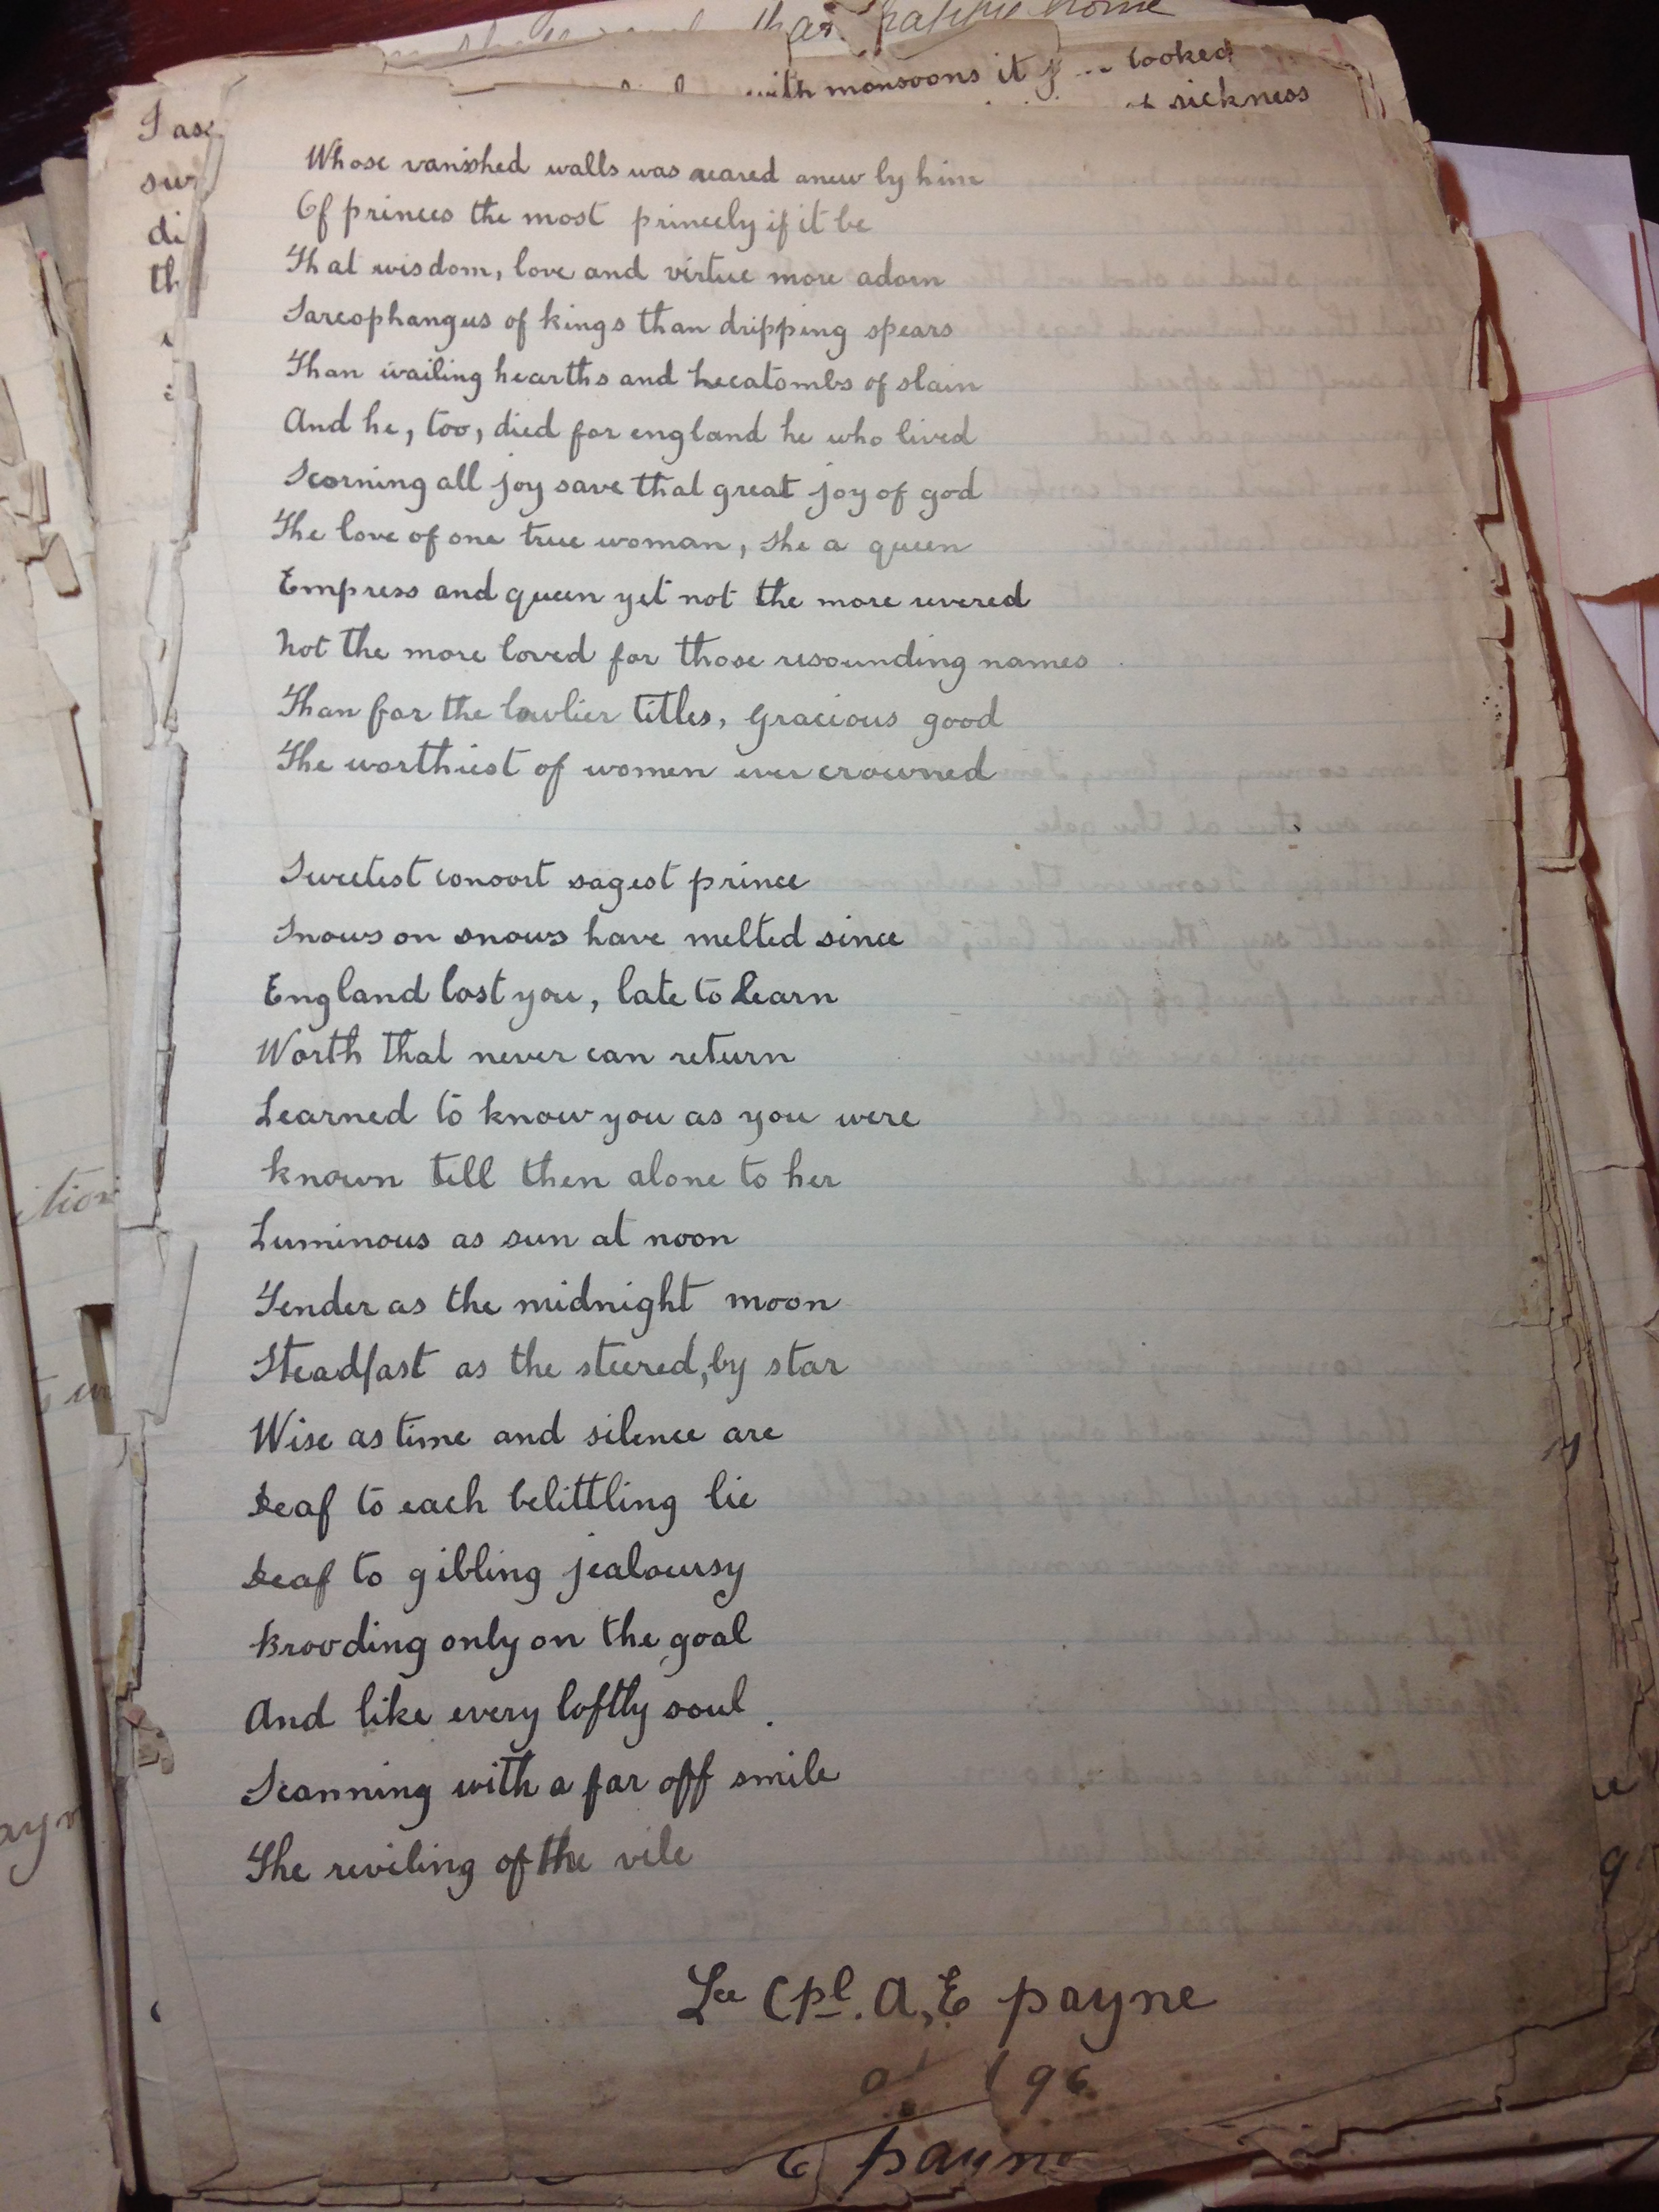 that happy home
with monsoons it looked
sickness
I as
sur
di
th
Whose vanished walls was reared anew by him
Of princes the most princely if it be
That wisdom, love and virtue more adorn
Sarcophangus of kings than dripping spears
Than wailing hearths and hecatombs of slain
And he, too, died for england he who lived
Scorning all joy save that great joy of god
The love of one true woman, she a queen
Empress and queen yet not the more revered
Not the more loved for those resounding names
Than for the lowlier titles, gracious good
The worthiest of women ever crowned
Sweetest consort sagest prince
Snows on snows have melted since
England lost you, late to learn
Worth that never can return
Learned to know you as you were
known till then alone to her
Luminous as sun at noon
Tender as the midnight moon
Steadfast as the steered, by star
Wise as time and silence are
Deaf to each belittling lie
Deaf to gibling jealoursy
Brooding only on the goal
And like every loftly soul
Scanning with a far off smile
The reviling of the vile
Lce Cpl. A, E payne
96
E payne